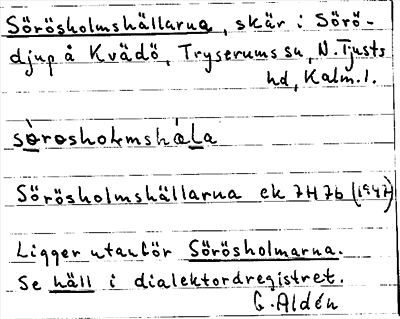 Sörösholmshällarna, skär i Sörö-
djup å Kvädö, Tryserums sn, N. Tjusts
hd, Kalm. l.
sòrosholmshála
Sörösholmshällarna ek 7H7b (1947)
Ligger utanför Sörösholmarna.
Se häll i dialektordregistret.
G. Aldén